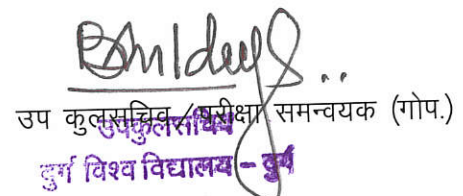 उप कुलसचिव/परीक्षा समन्वयक (गोप.)
उपकुलसचिव
दुर्ग विश्व विद्यालय – दुर्ग